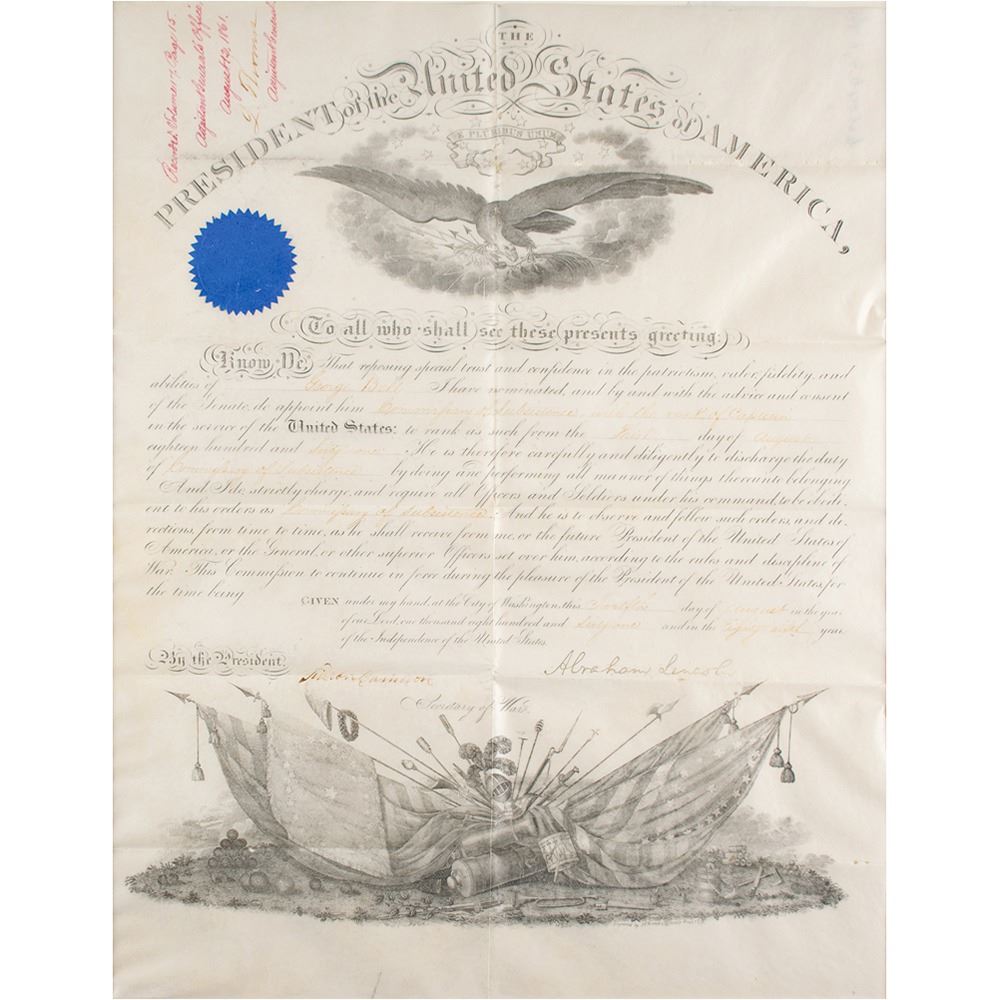 Recorded Volume 17, Page 15
Adjutant General's Office,
August 12, 1861.
L. Thomas
Adjutant General
THE
PRESIDENT of the United States of AMERICA,
E PLURIBUS UNUM
To all who shall see these presents greeting:
Know Ye, That reposing special trust and confidence in the patriotism, valor, fidelity, and
abilities of George Bell I have nominated, and by and with the advice and consent
of the Senate, do appoint him Commissary of Subsistence, with the rank of Captain
in the service of the United States: to rank as such from the third day of August
eighteen hundred and sixty one. He is therefore carefully and diligently to discharge the duty
of Commissary of Subsistence by doing and performing all manner of things thereunto belonging
And I do strictly charge, and require all Officers and Soldiers under his command, to be obedi-
ent to his orders as Commissary of Subsistence. And he is to observe and follow such orders, and di-
rections, from time to time, as he shall receive from me, or the future President of the United States of
America, or the General, or other superior Officers set over him, according to the rules and discipline of
War. This Commission to continue in force during the pleasure of the President of the United States, for
the time being
GIVEN under my hand, at the City of Washington, this twelfth day of August in the year
of our Lord, one thousand eight hundred and sixty one and in the eighty sixth year
of the Independence of the United States.
By the President,
Abraham Lincoln
Simon Cameron
Secretary of War.